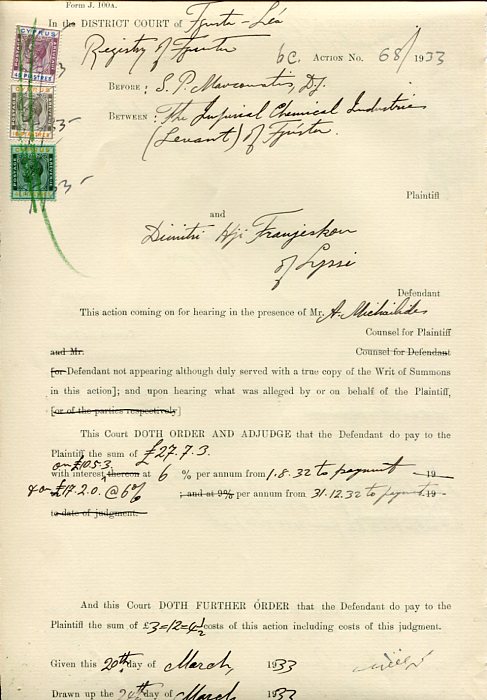 Form J. 100A.
In the DISTRICT COURT of
Registry of
ACTION No. 68/1933
BEFORE: S. P. D.J.
BETWEEN: The Imperial Chemical Industries
(Levant) of
Plaintiff
and
Dimitri Hji Franjeskou
of Lyssi
Defendant
This action coming on for hearing in the presence of Mr. A. Michailides
Counsel for Plaintiff
and Mr. Counsel for Defendant
[or Defendant not appearing although duly served with a true copy of the Writ of Summons
in this action]; and upon hearing what was alleged by or on behalf of the Plaintiff,
[or of the parties respectively]
This Court DOTH ORDER AND ADJUDGE that the Defendant do pay to the
Plaintiff the sum of £27.7.3.
on £10.5.3
with interest thereon at 6 % per annum from 1.8.32 to payment 19
& on £17.2.0. @ 6% ; and at 9% per annum from 31.12.32 to payment 19
to date of judgment.
And this Court DOTH FURTHER ORDER that the Defendant do pay to the
Plaintiff the sum of £3=12=4½ costs of this action including costs of this judgment.
Given this 20th day of March, 1933
Drawn up the day of March 1933
CYPRUS